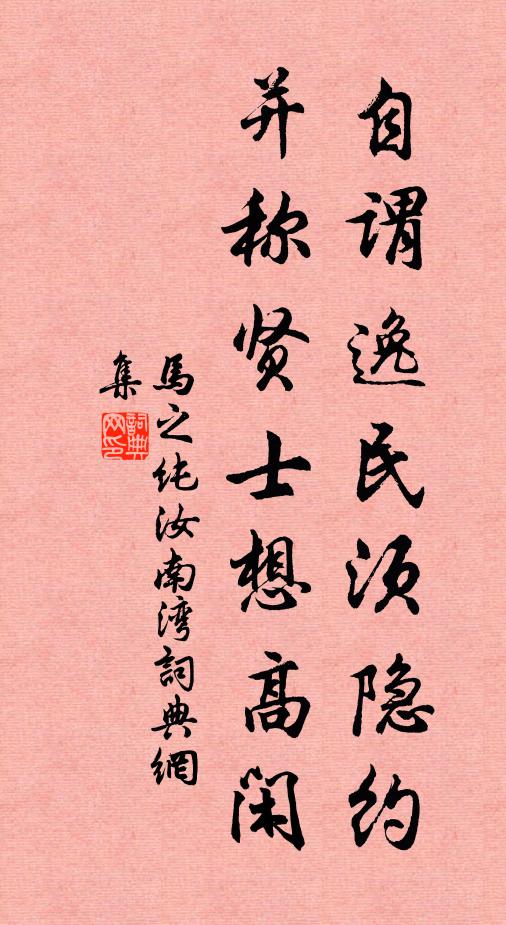 自谓逸民须隐约
并称贤士想高闲
馬之纯汝南湾詞典網
集
詞典
网印